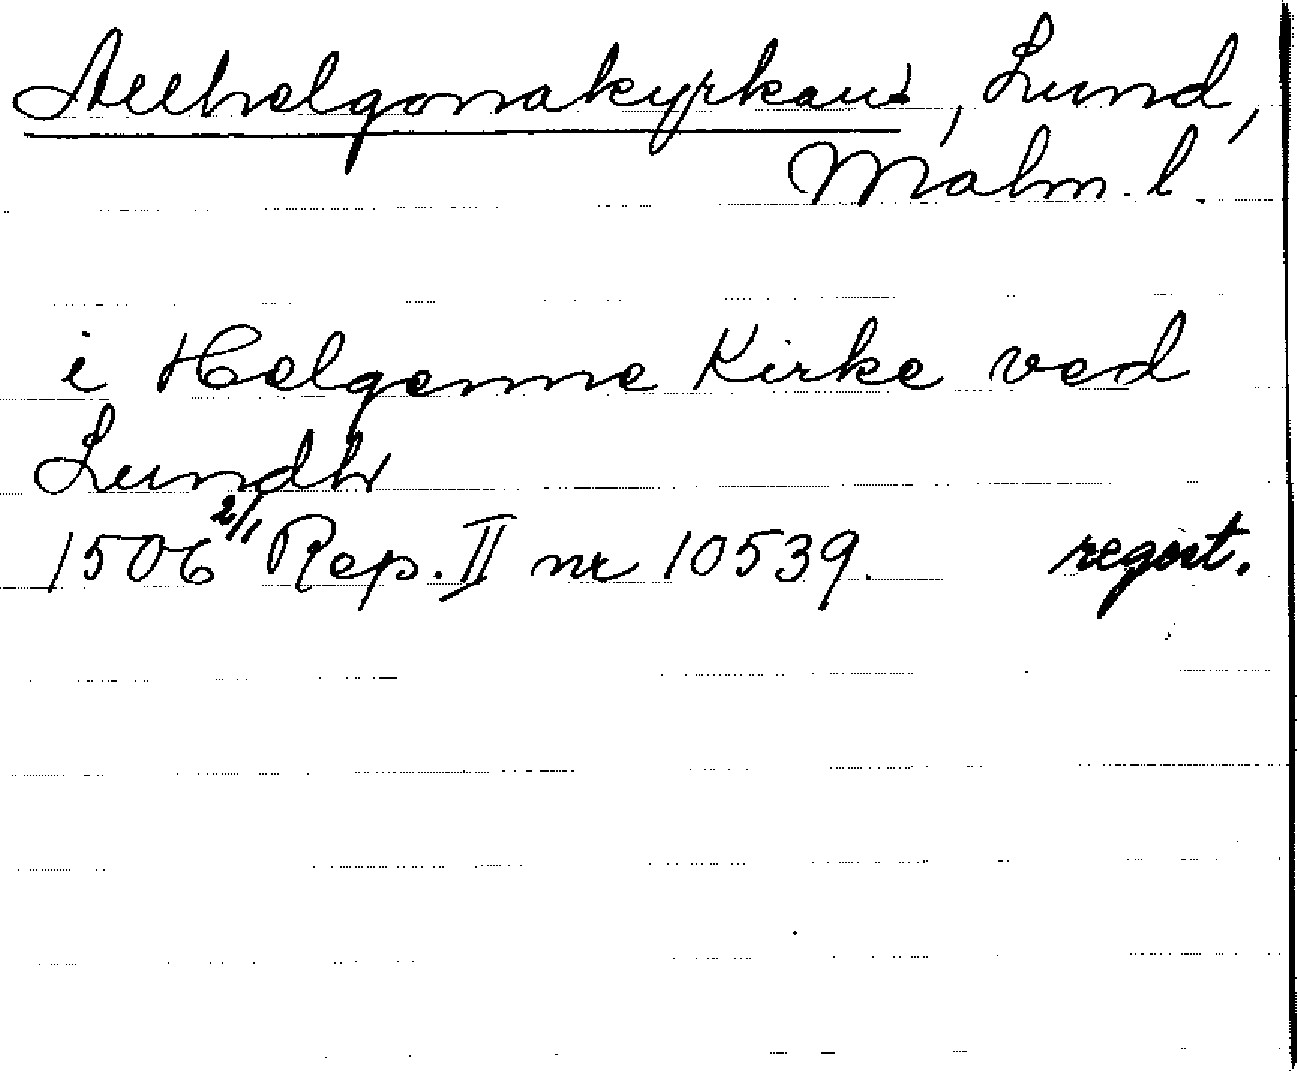 Allhelgonakyrkan, Lund,
Malm. l.
i Helgenne Kirke ved
Lundh
1506 2/1 Rep. II nr 10539. regist.